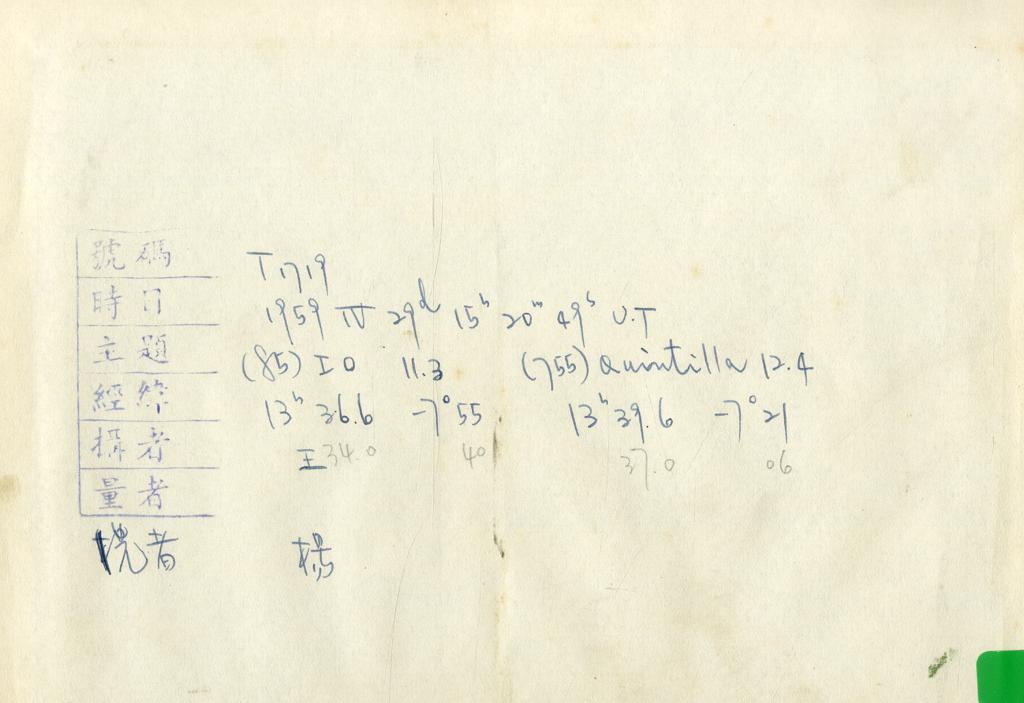 號碼 T1719
時日 1959 IV 29ᵈ 15ʰ 20ᵐ 49ˢ U.T
主題 (85) IO 11.3 (755) Quintilla 12.4
經緯 13ʰ 36.6 -7°55 13ʰ 39.6 -7°21
攝者 王 34.0 40 37.0 06
量者
洗者 楊